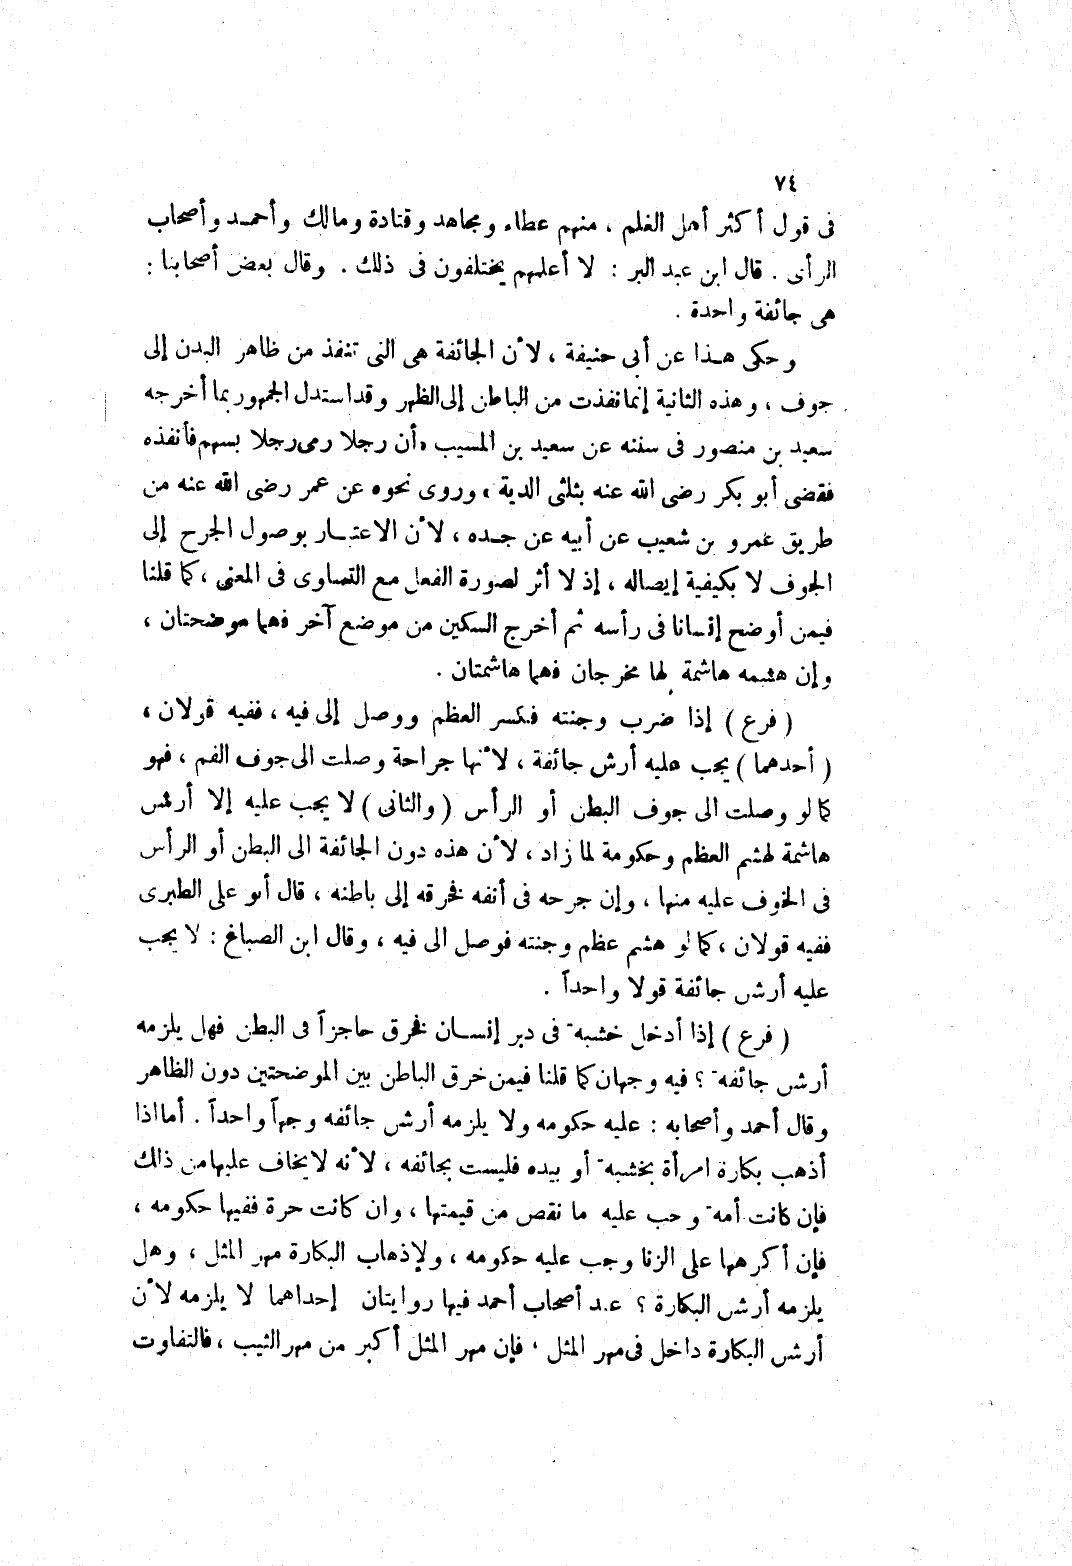 ٧٤
فى قول أكثر أهل العلم ، منهم عطاء ومجاهد وقتادة ومالك وأحمد وأصحاب
الرأى . قال ابن عبد البر : لا أعلمهم يختلفون فى ذلك . وقال بعض أصحابنا :
هى جائفة واحدة .
وحكى هذا عن أبى حنيفة ، لأن الجائفة هى التى تنفذ من ظاهر البدن إلى
جوف ، وهذه الثانية إنما نفذت من الباطن إلى الظهر وقد استدل الجمهور بما أخرجه
سعيد بن منصور فى سننه عن سعيد بن المسيب « أن رجلا رمى رجلا بسهم فأنفذه
فقضى أبو بكر رضى الله عنه بثلثى الدية ، وروى نحوه عن عمر رضى الله عنه من
طريق عمرو بن شعيب عن أبيه عن جده ، لأن الاعتبار بوصول الجرح إلى
الجوف لا بكيفية إيصاله ، إذ لا أثر لصورة الفعل مع التساوى فى المعنى ، كما قلنا
فيمن أوضح إنسانا فى رأسه ثم أخرج السكين من موضع آخر فهما موضحتان ،
وإن هشمه هاشمة لها مخرجان فهما هاشمتان .
( فرع ) إذا ضرب وجنته فكسر العظم ووصل إلى فيه ، ففيه قولان ،
( أحدهما ) يجب عليه أرش جائفة ، لأنها جراحة وصلت الى جوف الفم ، فهو
كما لو وصلت الى جوف البطن أو الرأس ( والثانى ) لا يجب عليه إلا أرش
هاشمة لهشم العظم وحكومة لما زاد ، لأن هذه دون الجائفة الى البطن أو الرأس
فى الخوف عليه منها ، وإن جرحه فى أنفه فخرقه إلى باطنه ، قال أبو على الطبرى
ففيه قولان ، كما لو هشم عظم وجنته فوصل الى فيه ، وقال ابن الصباغ : لا يجب
عليه أرش جائفة قولا واحداً .
( فرع ) إذا أدخل خشبة فى دبر إنسان فخرق حاجزاً فى البطن فهل يلزمه
أرش جائفه ؟ فيه وجهان كما قلنا فيمن خرق الباطن بين الموضحتين دون الظاهر
وقال أحمد وأصحابه : عليه حكومه ولا يلزمه أرش جائفه وجهاً واحداً . أما اذا
أذهب بكارة امرأة بخشبة أو بيده فليست بجائفه ، لأنه لا يخاف عليها من ذلك
فإن كانت أمة وجب عليه ما نقص من قيمتها ، وان كانت حرة ففيها حكومه ،
فإن أكرهها على الزنا وجب عليه حكومه ، ولإذهاب البكارة مهر المثل ، وهل
يلزمه أرش البكارة ؟ عند أصحاب أحمد فيها روايتان إحداهما لا يلزمه لأن
أرش البكارة داخل فى مهر المثل ، فإن مهر المثل أكبر من مهر الثيب ، فالتفاوت